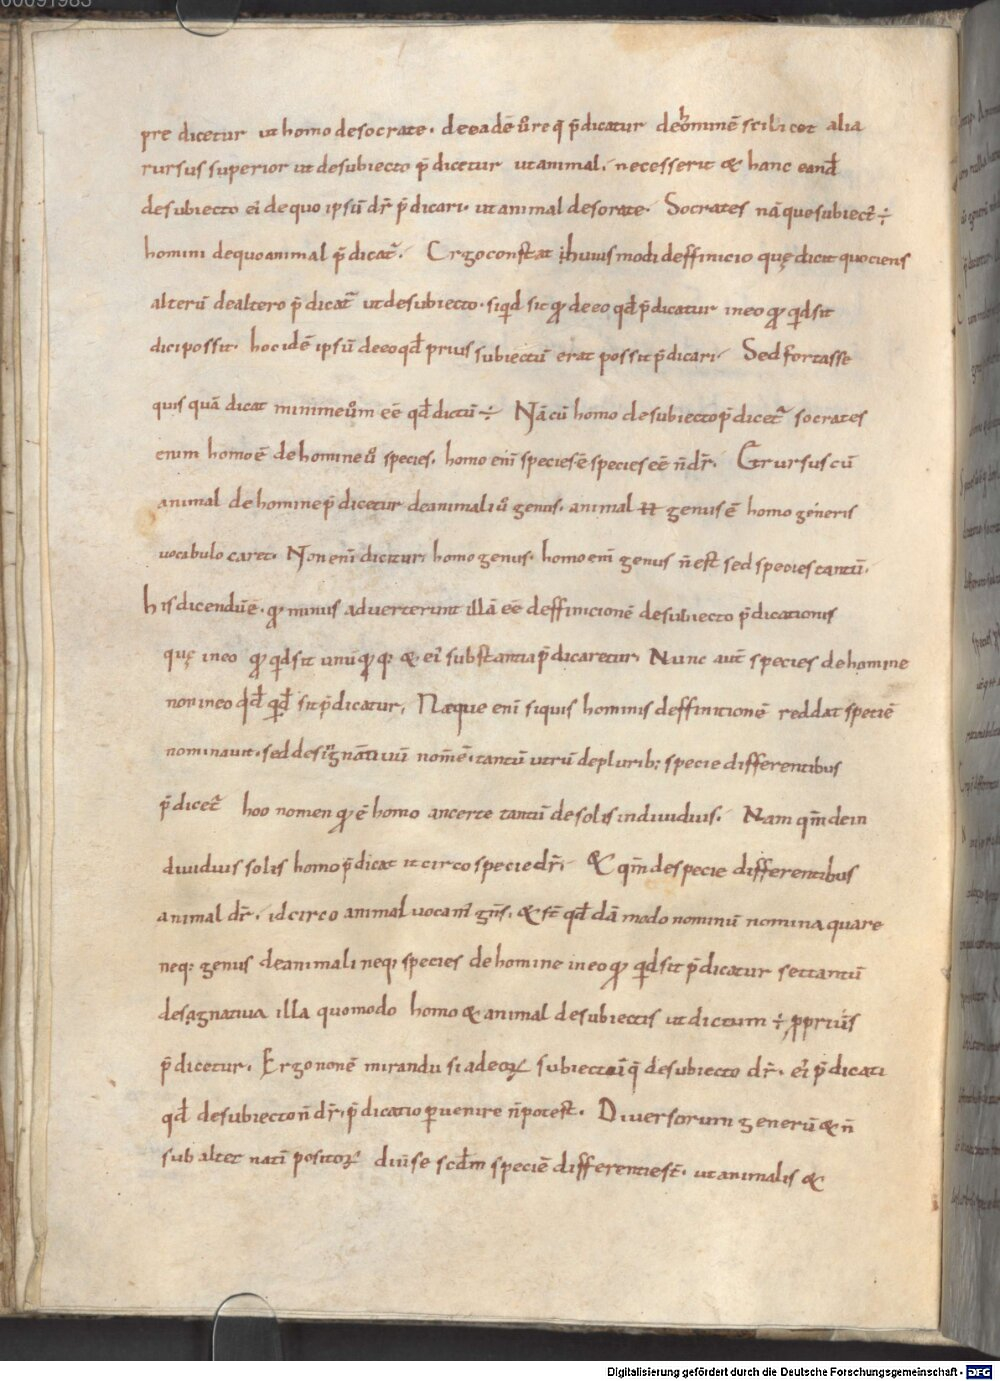 00091983
pre dicetur ut homo desocrate. deeadē u̇req; p̄dicatur dehominē scilicet alia
rursus superior ut desubiecto p̄dicetur ut animal, necesserit & hanc eand̄
desubiecto ei dequo ipsū dr̄ p̄dicari. ut animal desorate. Socrates nāquesubiect̄ ÷
homini dequoanimal p̄dicat̄. Ergoconstat ihuiusmodi deffinicio quę dicit quociens
alterū dealtero p̄dicat̄ utdesubiecto. siqd̄ sit ꝙ deeo qd̄ p̄dicatur ineo ꝙ qd̄ sit
dici possit. hoc idē ipsū deeo qd̄ prius subiectū erat possit p̄dicari. Sed fortasse
quis quā dicat minime uͦm eē qd̄ dictū ÷ Nā cū homo desubiecto p̄dicet̄ socrates
enim homo ē dehomine uͦ species. homo enī species ē species eē n̄ dr̄. Et rursus cū
animal dehomine p̄dicetur deanimali uͦ genus. animal H genus ē homo generis
vocabulo caret. Non enī dicitur, homo genus. homo enī genus n̄ est sed species tantū.
his dicendū ē. ꝙ minus adverterunt illā eē deffinicionē desubiecto p̄dicationis
quę ineo ꝙ qd̄ sit unū ꝙ q; & ei substantia p̄dicaretur. Nunc aut̄ species dehomine
non ineo qd̄ qd̄ sit p̄dicatur. Næque enī siquis hominis deffinitionē reddat speciē
nominavit. sed designātivū nom̄ē. tantū utrū depluribꝫ specie differentibus
p̄dicet̄ hoo nomen ꝙ ē homo ancerte tantū desolis individuis. Nam qm̄ dein
dividuis solis homo p̄dicat it circo specie dr̄. & qm̄ despecie differentibus
animal dr̄. idcirco animal vocam̄ gn̄s. & st̄ qd̄ dā modo nominū nomina quare
neqꝫ genus deanimali neqꝫ species dehomine ineo ꝙ qd̄ sit p̄dicatur set tantū
desagnativa illa quomodo homo & animal desubiectis ut dictum ÷ p̱priūs
p̄dicetur. Ergo non ē mirandū si adeoꝝ subiecta quę desubiecto dr̄. ei p̄dicati
qd̄ desubiecto n̄ dr̄, p̄dicatio ꝑvenire n̄ potest. Diversorum generū & n̄
sub altet natī positoꝝ diūse scdm̄ speciē differentie st̄. ut animalis &
Digitalisierung gefördert durch die Deutsche Forschungsgemeinschaft - DFG